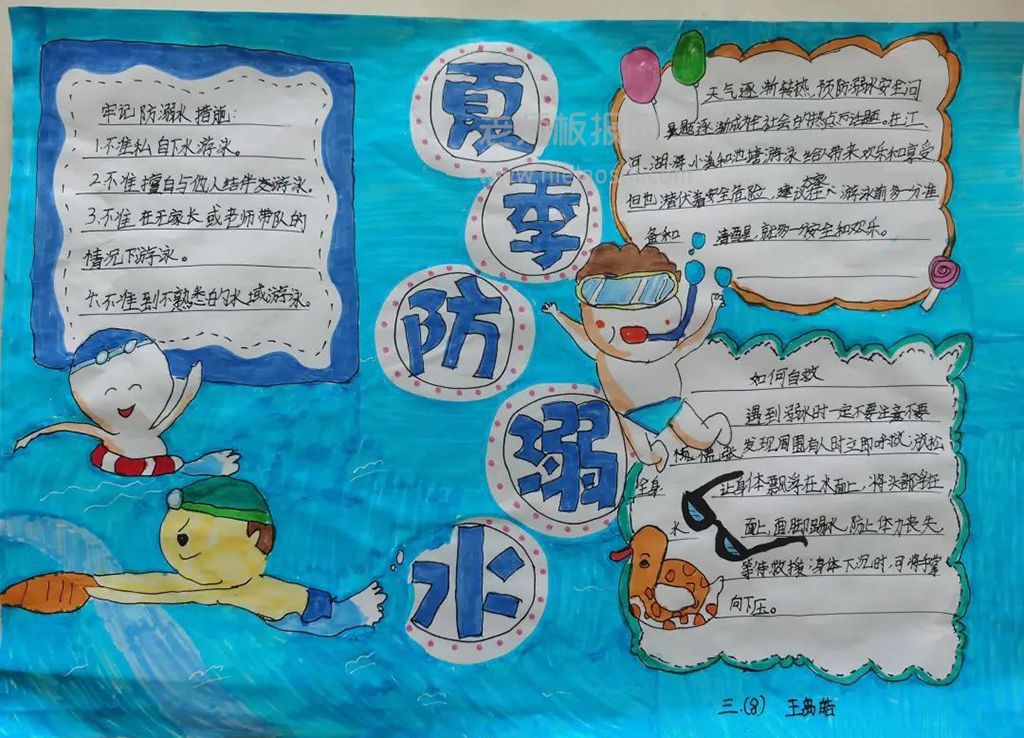 夏季防溺水
牢记防溺水措施:
1.不准私自下水游泳。
2.不准擅自与他人结伴去游泳。
3.不准在无家长或老师带队的
情况下游泳。
六.不准到不熟悉的水域游泳。
天气逐渐转热,预防溺水安全问
题逐渐成为社会的热点话题。在江、
河、湖、海、小溪和池塘游泳给带来欢乐和享受
但也潜伏着安全危险,建议大家在游泳前多一分准
备和清醒,就多一分安全和欢乐。
如何自救
遇到溺水时一定不要注意不要
慌慌张发现周围有人时立即呼救;放松
全身让身体飘浮在水面上,将头部浮在
水面上,用脚踢水,防止体力丧失
等待救援;身体下沉时,可将手掌
向下压。
三.(8) 王岛皓